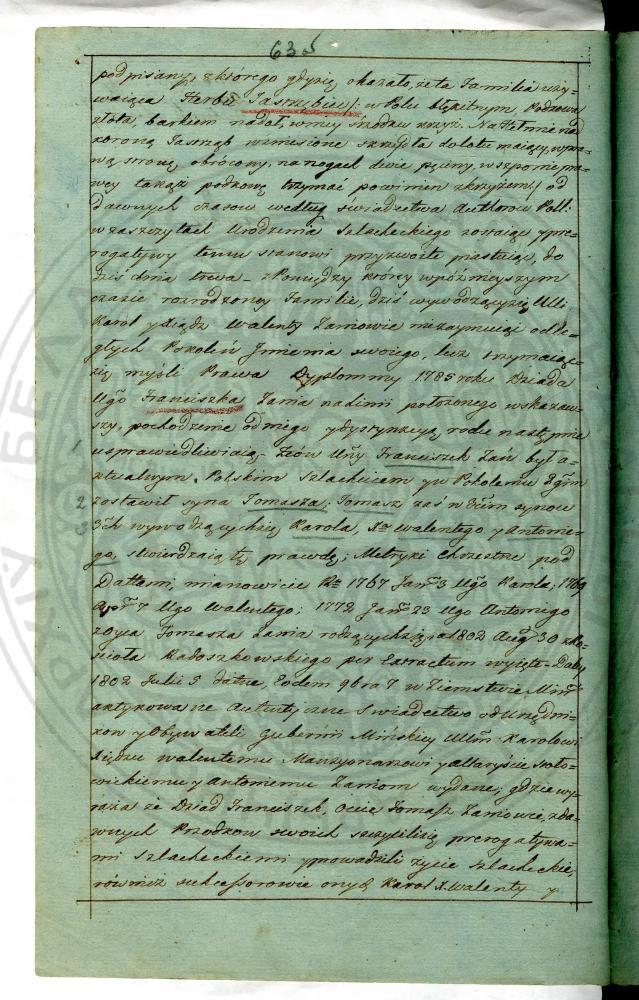 635
podpisany, z którego gdy się okazało, że ta Familia uży-
waiąca Herbu Jastrzębiec /: w Polu błękitnym, Podkowa
złota, barkiem nadół, w niey środku krzyż. Na Hełmie nad
koroną Jastrząb wzniesione skrzydła do lotu maiący, w pra-
wą stroną obrócony, na nogach dwie pęciny, w szponie pra-
wey takąż podkowę trzymać powinien z krzyżem :/ od
dawnych czasow według świadectwa Authorow Poll:
w zaszczytach Urodzenia Szlacheckiego zostaiąc y pre-
rogatywy temu stanowi przyzwoite piastuiąc, do
dziś dnia trwa – z Pomiędzy ktorey w późnieyszym
czasie rozrodzoney Familii, dziś wywodzący się Ulli
Karol y Xiądz Walenty Zaniowie nie zaymuiąc odle-
głych Pokoleń Jmienia swoiego, lecz trzymaiąc
się myśli Prawa Dyplommy 1785 roku Dziada
Ugo Franciszka Zania na dimi położonego wskazaw-
szy, pochodzenie od niego y dystynkcyą rodu następnie
usprawiedliwiaią – Zeów Uny Franciszek Zań był a-
ktualnym, Polskim Szlachcicem y w Pokoleniu
1
zostawił syna Tomasza, Tomasz zaś w synow
2
3ch wywodzących się Karola, Xa Walentego y Antonie-
3
go, stwierdzaią tę prawdę; Metryki Chrzestne pod
Dattami, mianowicie Re 1767 Jan: 3 Ugo Karola; 1769
Apr: 7 Ugo Walentego; 1772 Jan: 23 Ugo Antoniego
z oyca Tomasza Zania rodzących się, a 1802 Aug: 30 z Ko-
scioła Radoszkowskiego per Extractum wyięte – Daley
1802 Julii 5 datne, Eodem 9bra 7 w Ziemstwie Miń:
aktykowane Autentyczne Swiadectwo od Urzędni-
kow y Obywateli Gubernii Mińskiey Ulm Karolowi
Xiędzu Walentemu Mansyonarzowi y Altaryście Stoło-
wickiemu y Antoniemu Zaniom wydane; gdzie wy-
raża że Dziad Franciszek, Ociec Tomasz Zaniowie, z da-
wnych Przodkow swoich szczycili się prerogatywa-
mi Szlacheckiemi y prowadzili życie Szlacheckie,
rownież sukcessorowie onych Karol X. Walenty y